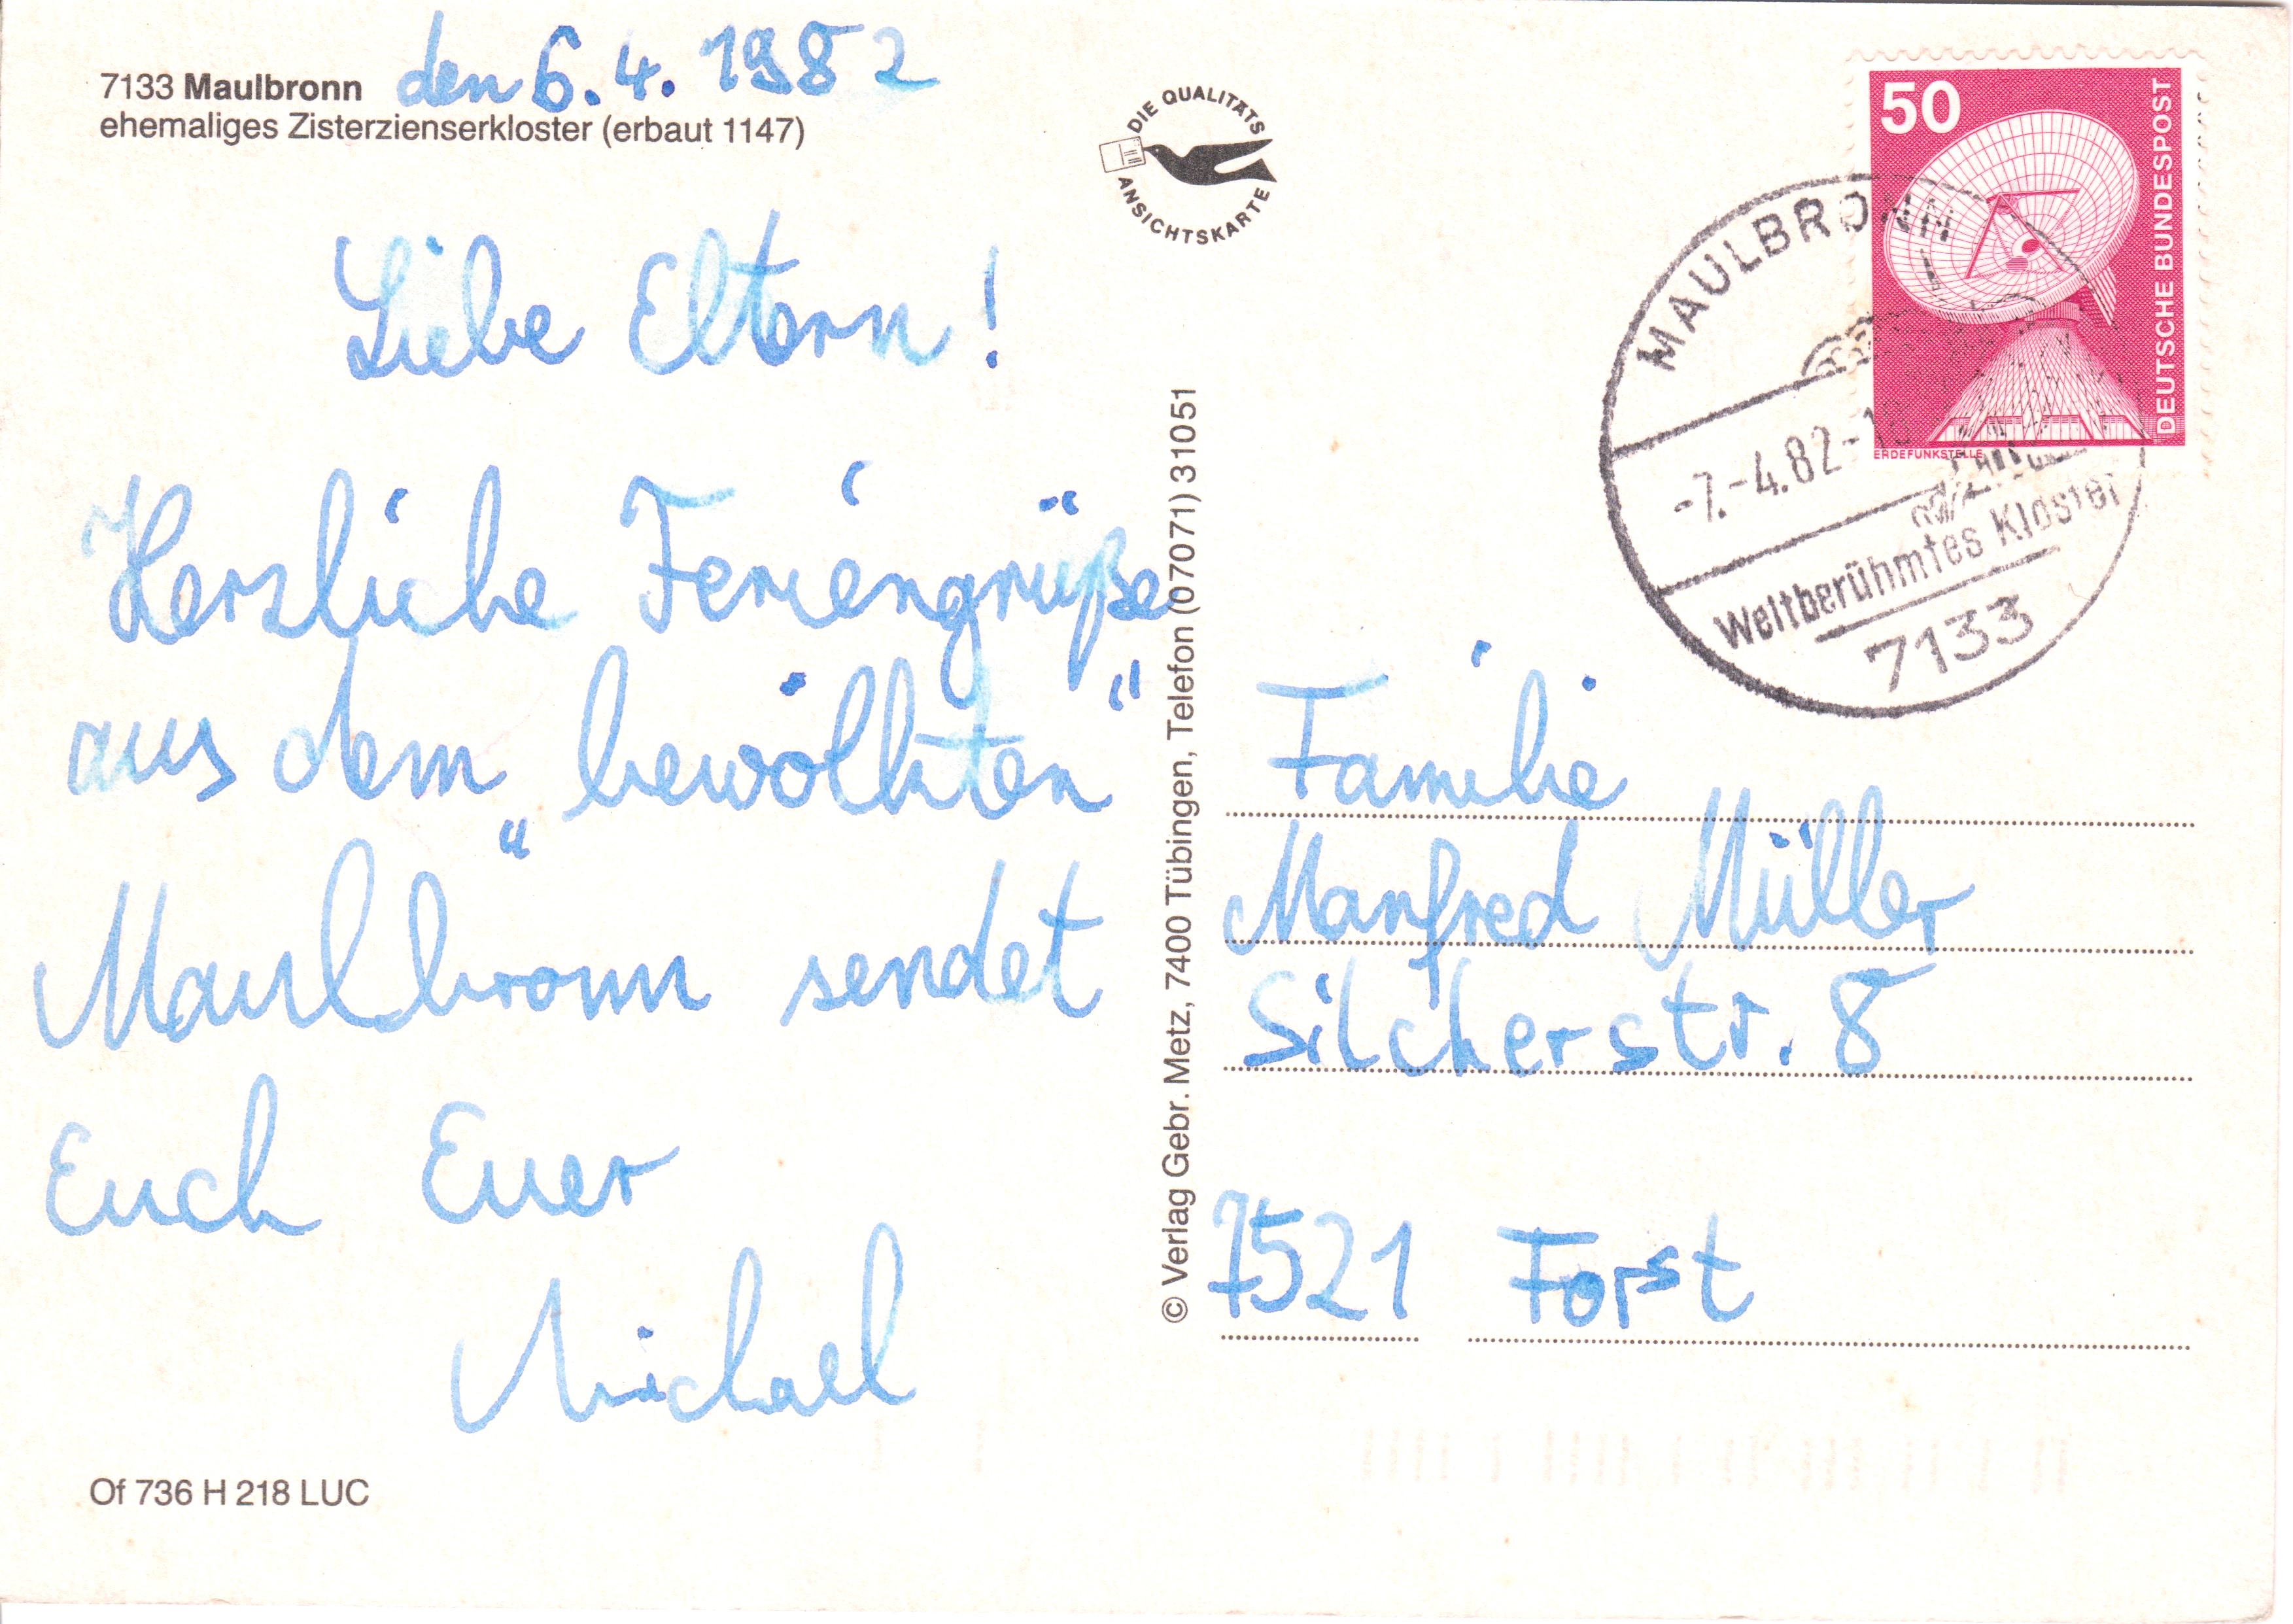 7133 Maulbronn den 6.4.1982
ehemaliges Zisterzienserkloster (erbaut 1147)
DIE QUALITÄTS
ANSICHTSKARTE
Liebe Eltern!
Herzliche Feriengrüße
aus dem „bewölkten"
Maulbronn sendet
Euch Euer
Michael
Of 736 H 218 LUC
© Verlag Gebr. Metz, 7400 Tübingen, Telefon (07071) 31051
50
DEUTSCHE BUNDESPOST
ERDEFUNKSTELLE
MAULBRONN
-7.-4.82-
Weltberühmtes Kloster
7133
Familie
Manfred Müller
Silcherstr. 8
7521 Forst